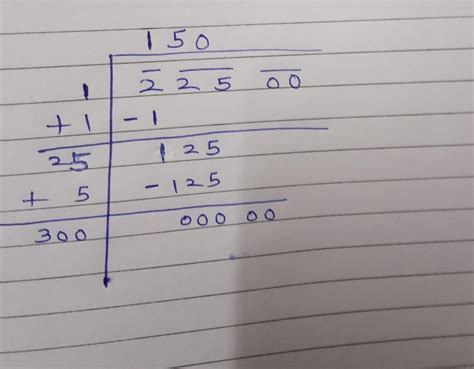 150
1 2 25 00
+1 -1
25 125
+ 5 -125
300 000 00